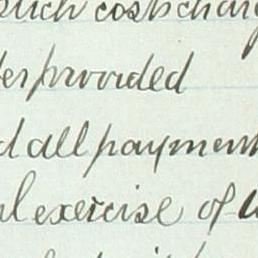 such costs char
er provided
d all payment
l exercise of